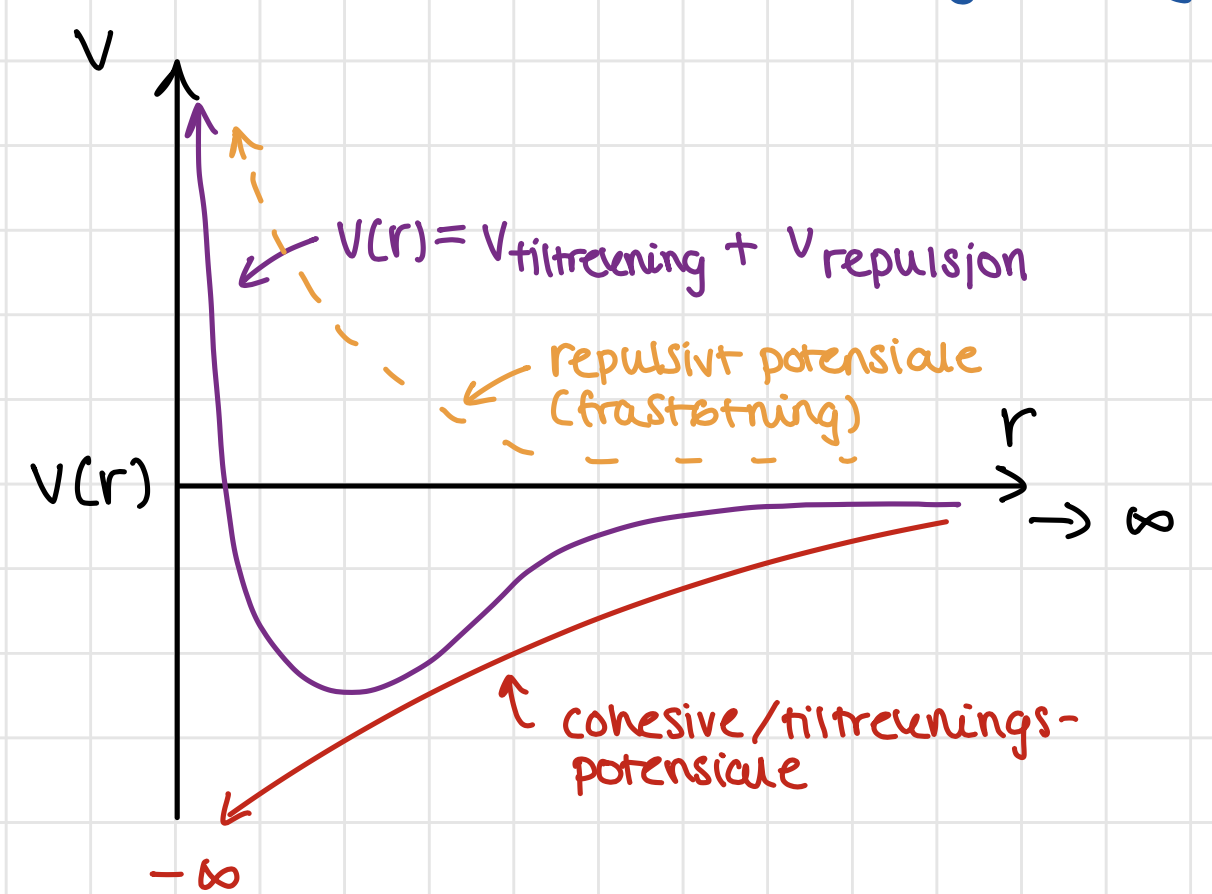 V
V(r) = V tiltrekning + V repulsjon
repulsivt potensiale
(frastøtning)
r
V(r)
→ ∞
cohesive/tiltreknings-
potensiale
- ∞